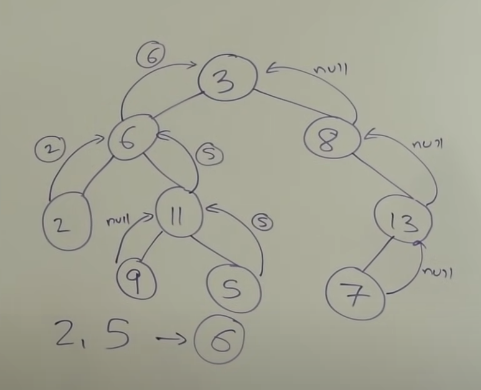 6
3
null
2
6
5
8
null
2
null
11
5
13
9
5
7
null
2, 5 → 6